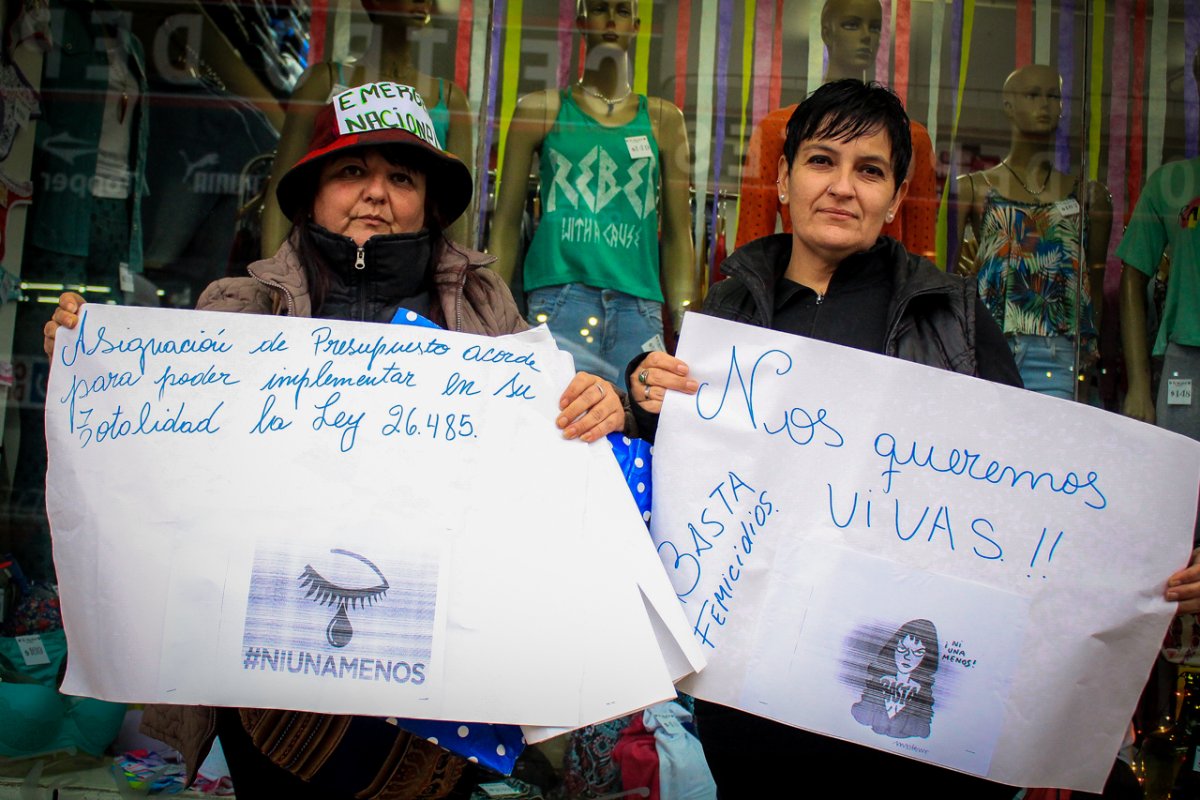 EMERG
NACIONAL
REBEL
WITH A CAUSE
Topper
PUMA
Asignación de Presupuesto acorde
para poder implementar en su
totalidad la Ley 26.485.
#NIUNAMENOS
Nos queremos
VIVAS.!!
BASTA
FEMICIDIOS.
¡NI
UNA
MENOS!
BASTA
$148